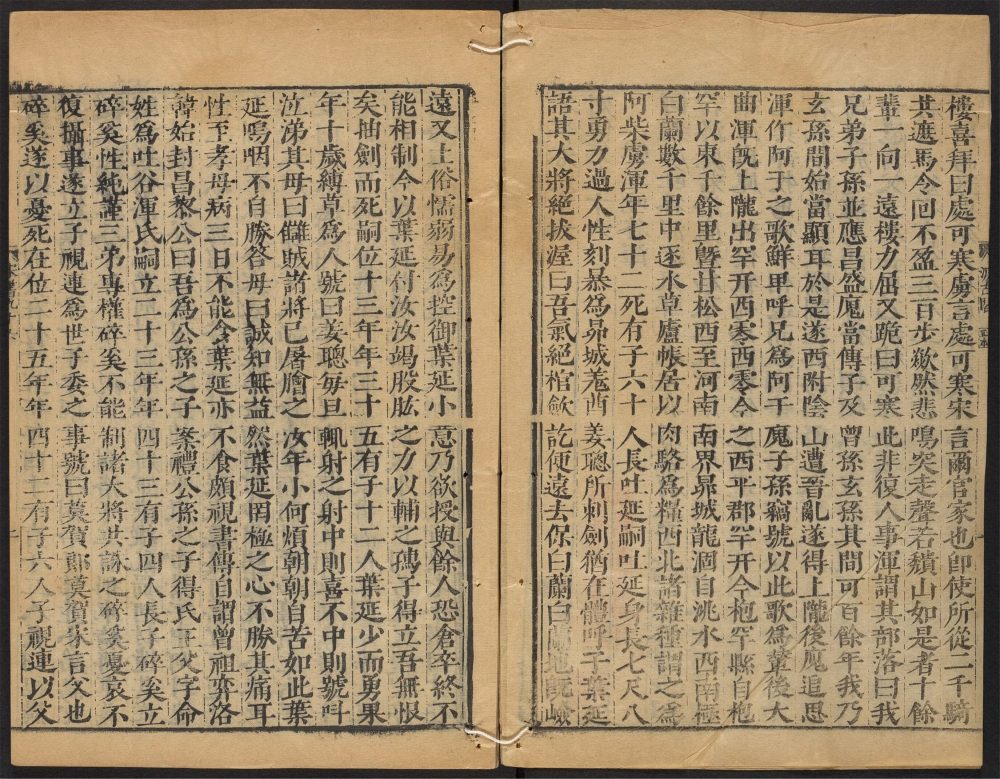 樓喜拜曰處可寒虜言處可寒宋言爾官家也卽使所從二千騎
共遮馬令回不盈三百步欻然悲鳴突走聲若頹山如是者十餘
輩一向一遠樓力屈又跪曰可寒此非復人事渾謂其部落曰我
兄弟子孫並應昌盛廆當傳子及曾孫玄孫其間可百餘年我乃
玄孫間始當顯耳於是遂西附陰山遭晉亂遂得上隴後廆追思
渾作阿于之歌鮮甲呼兄爲阿干廆子孫竊號以此歌爲輦後大
曲渾旣上隴出罕开西零西零今之西平郡罕开今枹罕縣自枹
罕以東千餘里曁甘松西至河南南界昴城龍涸自洮水西南極
白蘭數千里中逐水草廬帳居以肉駱爲糧西北諸雜種謂之爲
阿柴虜渾年七十二死有子六十人長吐延嗣吐延身長七尺八
寸勇力過人性刻暴爲昴城羗酋姜聰所刺劍猶在體呼子葉延
語其大將絶拔渥曰吾氣絶棺斂訖便遠去保白蘭白蘭地旣嶮
遠又土俗懦弱易爲控御葉延小意乃欲授與餘人恐倉卒終不
能相制今以葉延付汝汝竭股肱之力以輔之孺子得立吾無恨
矣抽劍而死嗣位十三年年三十五有子十二人葉延少而勇果
年十歲縛草爲人號曰姜聰每旦輒射之射中則喜不中則號叫
泣涕其母曰讎賊諸將已屠膾之汝年小何煩朝朝自苦如此葉
延嗚咽不自勝答母曰誠知無益然葉延罔極之心不勝其痛耳
性至孝母病三日不能食葉延亦不食頗視書傳自謂曾祖弈洛
韓始封昌黎公曰吾爲公孫之子案禮公孫之子得氏王父字命
姓爲吐谷渾氏嗣立二十三年年四十三有子四人長子碎奚立
碎奚性純謹三弟專權碎奚不能制諸大將共誅之碎奚憂哀不
復攝事遂立子視連爲世子委之事號曰莫賀郞莫賀宋言父也
碎奚遂以憂死在位二十五年年四十二有子六人子視連以父